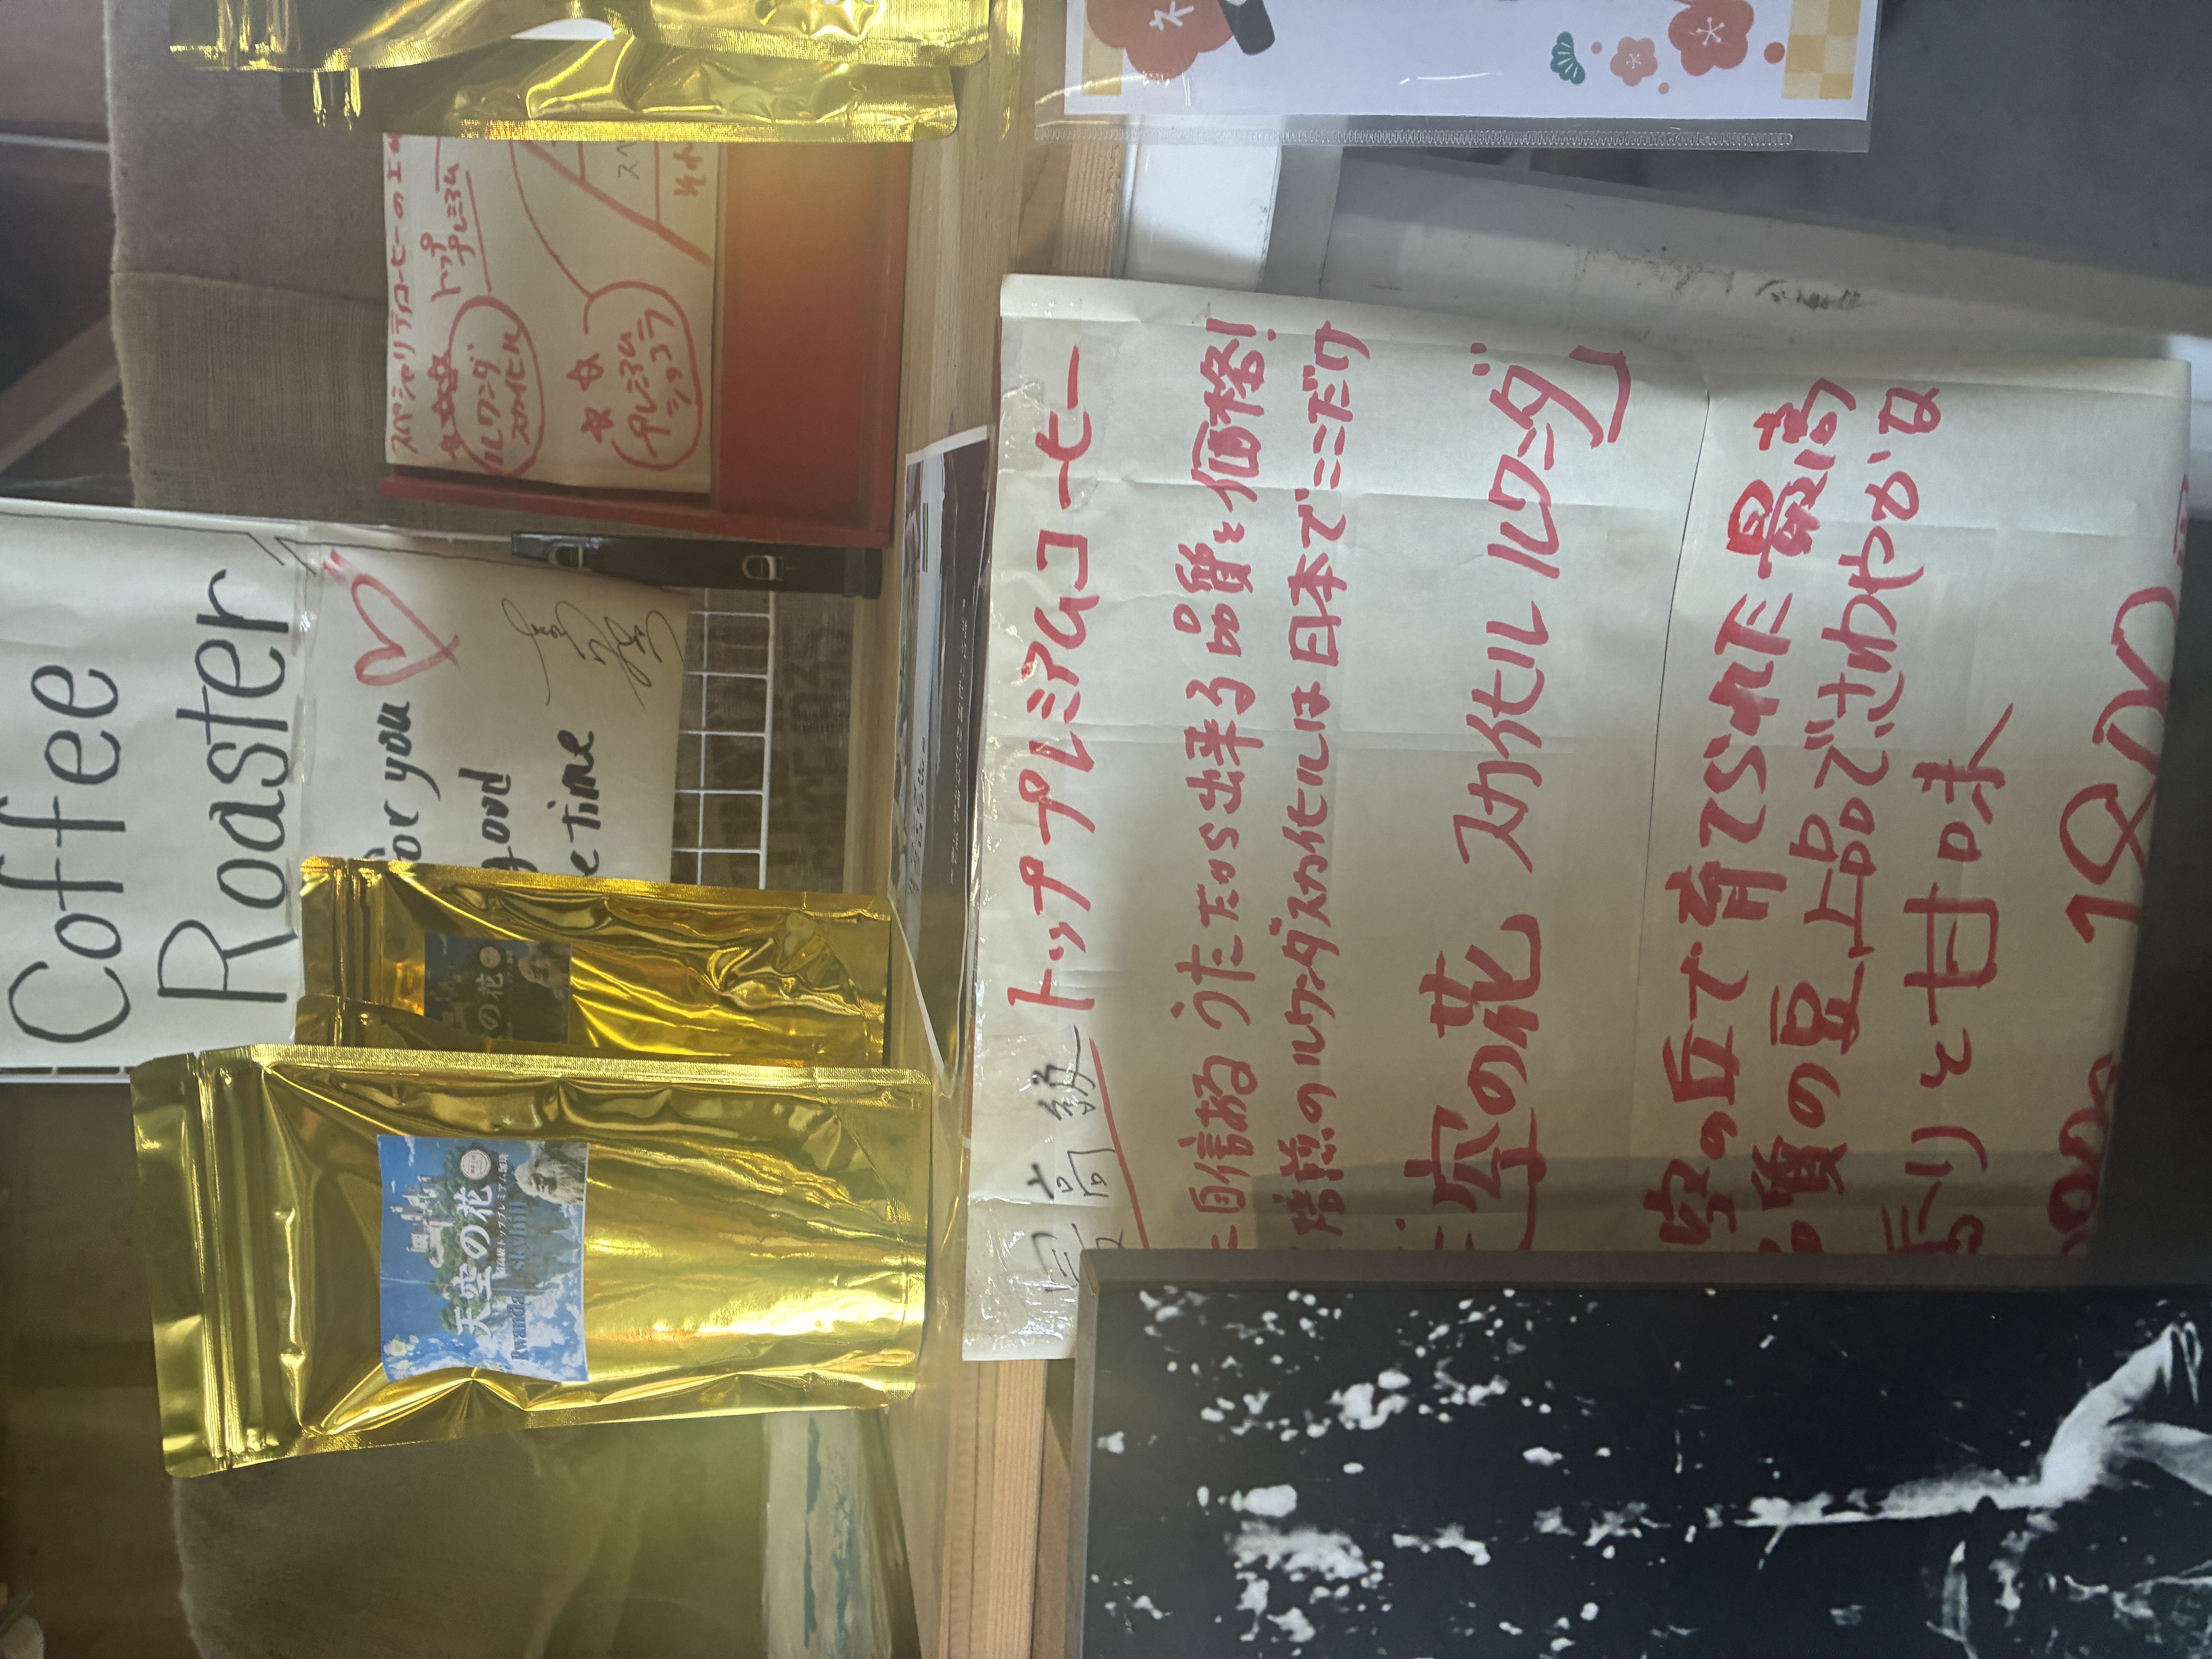 Coffee
Roaster
for you
good
e time
スペシャリティコーヒーの
トップ
プレミアム
ルワンダ
スカイヒル
プレミアム
ショコラ
スペ
それ
天空の花
最高級トッププレミアム珈琲
Rwanda skyhill
の花
最高級 トッププレミアムコーヒー
自信ある うたためら出来る 品質と価格!
焙煎のルワンダスカイヒルは日本でここだけ
空の花 スカイヒル ルワンダ」
空の丘で育てられた最高
質の豆 上品でさわやかな
香りと甘味
1800